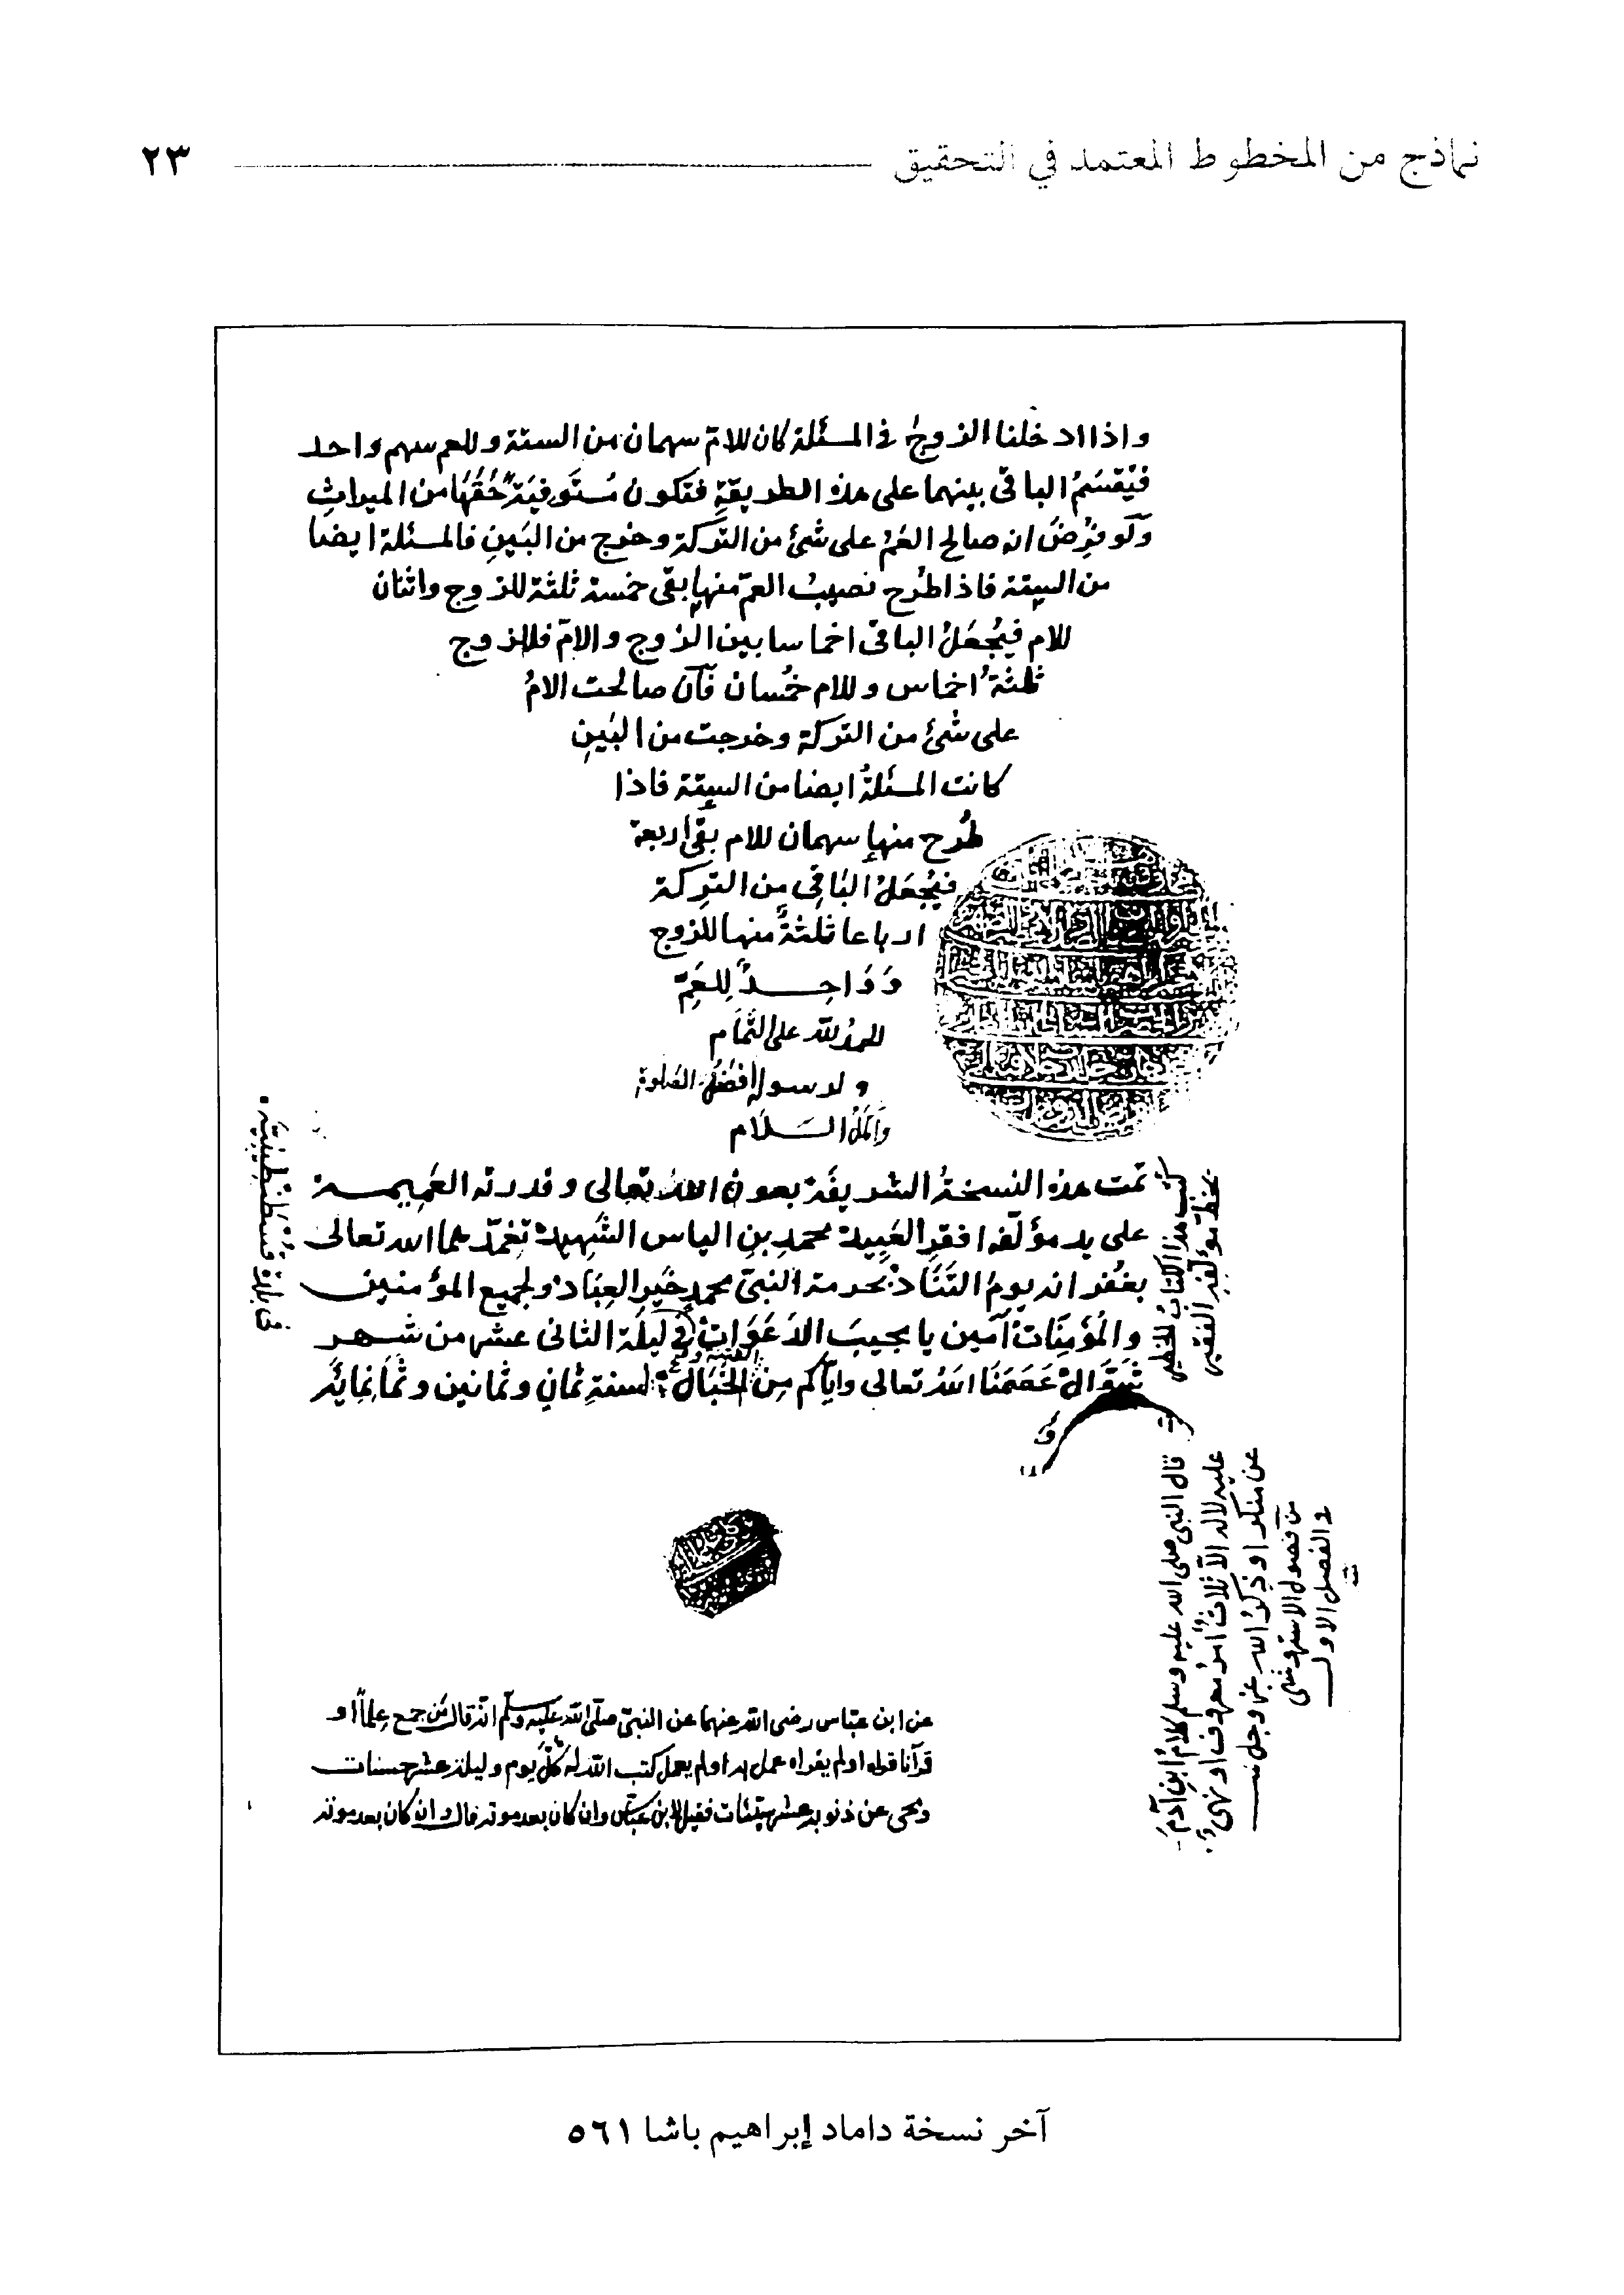 نماذج من المخطوط المعتمد في التحقيق ٢٣
واذا ادخلنا الزوجُ في المسئلة كان للامّ سهمان من الستة وللعم سهم واحد
فيُقسَمُ الباقى بينهما على هذه الطريقةِ فتكون مُستَوفِيَةً حُقَّهَا من الميراثِ
ولَو فُرِضَ ان صالح العَمُّ على شئ من التركة وخرج من البَينِ فالمسئلة ايضا
من الستة فاذا طُرح نصيبُ العمّ منها بقى خمسة ثلثة للزوج واثنان
للام فيُجعَلُ الباقى اخماسا بين الزوج والامّ فللزوج
ثلثةُ اخماس وللام خُمُسان فَاِن صالحت الامُّ
على شئ من التركة وخرجت من البَينِ
كانت المسئلةُ ايضا من الستة فاذا
طُرح منها سهمان للام بقى اربعة
فيُجعَلُ البَاقِى من التركة
ارباعا ثلثةٌ منها للزوج
وَوَاحِدٌ لِلعَمِّ
الحمدُ للّه على التَّمَام
ولرسوله افضَلُ الصلوة
وَاَكمَلُ السَّلَام
تمت هذه النسخةُ الشريفة بعون اللهُ تعالى وقدرته العَمِيمة
على يد مؤلّفه افقرِ العَبِيد محمدِ بنِ الياس الشَهِيد تغمّدَهما الله تعالى
بغفرانه يومَ التَّنَاد بحرمة النبىّ محمدٍ خَيرِ العِبَاد ولجميع المؤمنين
والمُؤمِنَات آمين يا مجيبَ الدَعَوَات في ليلة الثانى عشر من شهر
شَوَّال عَصَمَنَا اللهُ تعالى واياكم مِنَ الخَبَال لسنةِ ثمانٍ وثمانين وثمانمائة
كتب هذا الكتاب الخطير
بخط مؤلفه الفقير
فى بلدة قُسْطَنْطِينِيَّة
قال النبى صلى الله عليه وسلم كلامُ ابنِ آدمَ
عليه لا له الّا ثلاثٌ امرٌ بمعروف او نهىٌ
عن منكر او ذِكرُ الله عز وجل
من فصول الاستروشنى
والفصل الاول
عن ابن عبّاس رضى اللّه عنهما عن النبىّ صلّى اللّه عليه وسلّم انّه قال مَن جمع عِلمًا او
قرآنا قط او لم يقراه عمل به او لم يعمل كتب اللّه له كلَّ يوم وليلة عشر حسنات
ومحى عن ذنوبه عشر سيّئات فقيل لابن عبّاس وان كان بعد موته قال وان كان بعد موته
آخر نسخة داماد إبراهيم باشا ٥٦١